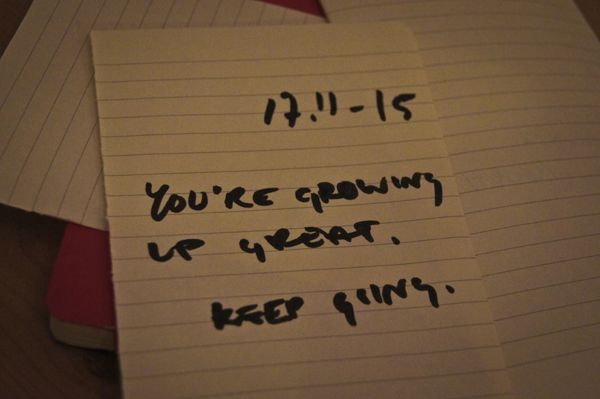 17.11-15
YOU'RE GROWING
UP GREAT.
KEEP GOING.